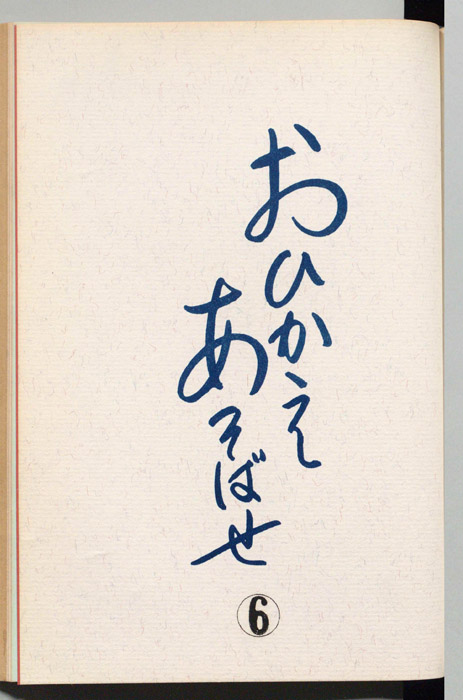 おひかえ
あそばせ
6